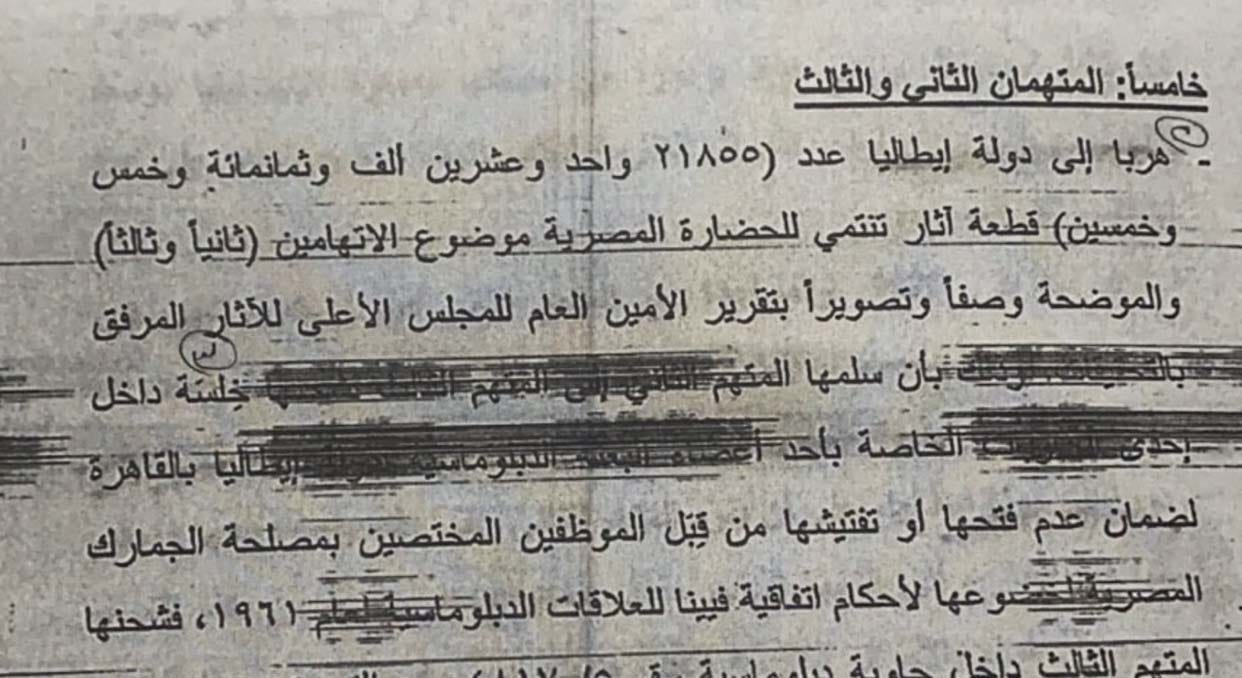 خامساً: المتهمان الثاني والثالث
- هربا إلى دولة إيطاليا عدد (٢١٨٥٥ واحد وعشرين ألف وثمانمائة وخمس
وخمسين) قطعة آثار تنتمي للحضارة المصرية موضوع الاتهامين (ثانياً وثالثاً)
والموضحة وصفاً وتصويراً بتقرير الأمين العام للمجلس الأعلى للآثار المرفق
بأن سلمها المتهم الثاني إلى المتهم الثالث خلسة داخل
إحدى الخاصة بأحد أعضاء البعثة الدبلوماسية إيطاليا بالقاهرة
لضمان عدم فتحها أو تفتيشها من قِبَل الموظفين المختصين بمصلحة الجمارك
المصرية لخضوعها لأحكام اتفاقية فيينا للعلاقات الدبلوماسية لعام ١٩٦١، فشحنها
المتهم الثالث داخل حاوية دبلوماسية